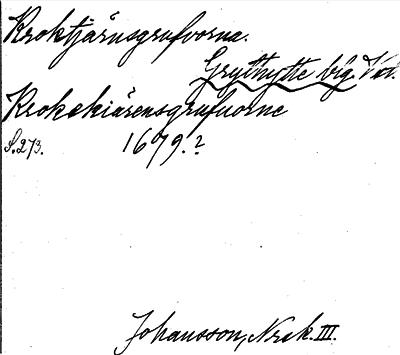 Kroktjärnsgrufvorna.
Grythytte bg. Väs.
Krokekiärensgrufuorne
S. 273. 1679.?
Johansson, Nrsk. III.